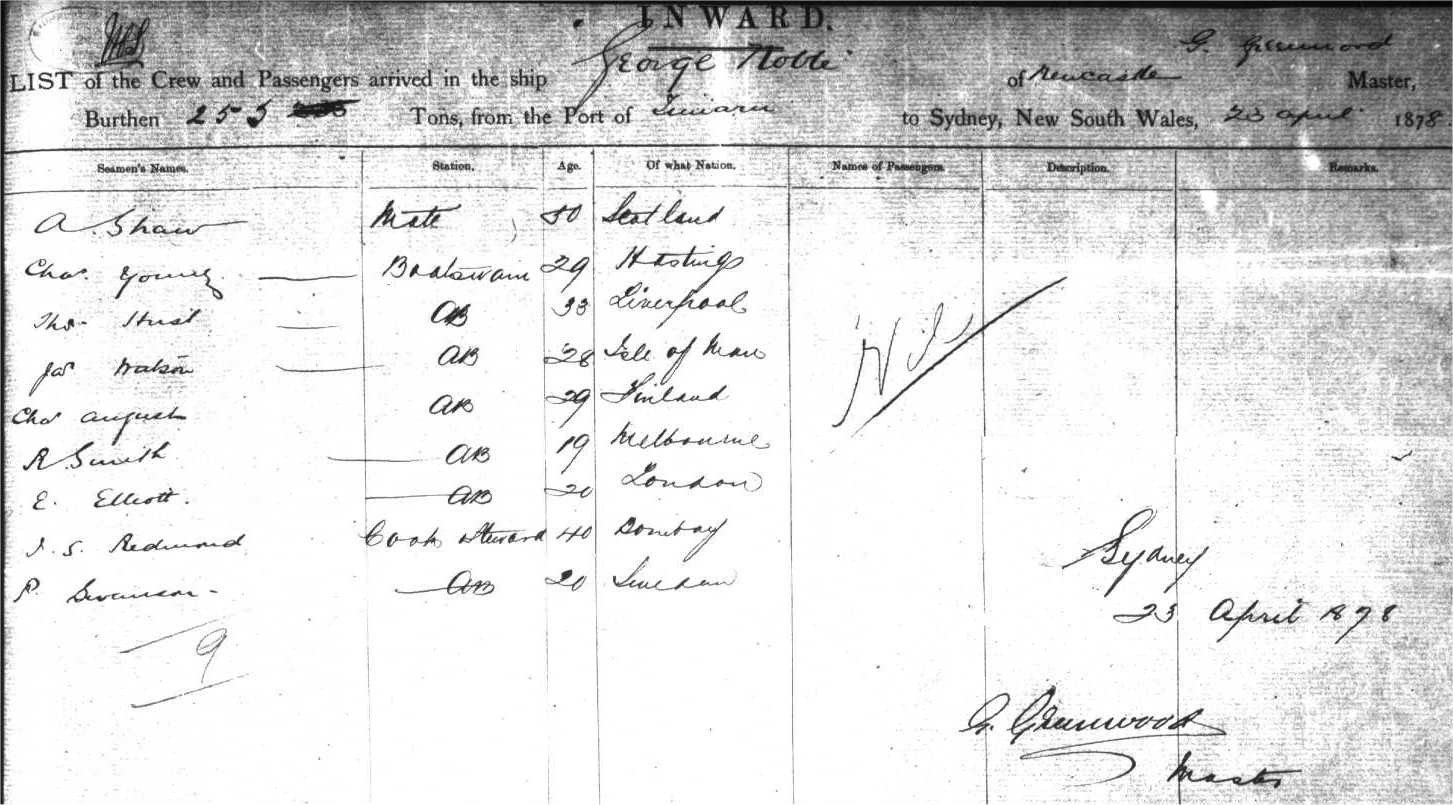 INWARD.
G. Greenwood
LIST of the Crew and Passengers arrived in the ship George Noble of Newcastle Master,
Burthen 255 Tons, from the Port of Timaru to Sydney, New South Wales, 23 April 1878
Seamen's Names. Station. Age. Of what Nation. Names of Passengers. Description. Remarks.
A. Shaw Mate 50 Scotland
Chas. Young Boatswain 29 Hastings
Thos. Hurst AB 33 Liverpool
Jas Watson AB 28 Isle of Man
Nil
Chas August AB 29 Finland
R Smith AB 19 Melbourne
E. Elliott. AB 20 London
J. S. Redmond Cook Steward 40 Bombay
P. Swanson AB 20 Sweden
9
Sydney
23 April 1878
G. Greenwood
Master